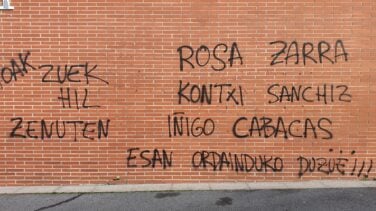 OAK ZUEK
HIL
ZENUTEN
ROSA ZARRA
KONTXI SANCHIZ
IÑIGO CABACAS
ESAN ORDAINDUKO DUZUË!!!